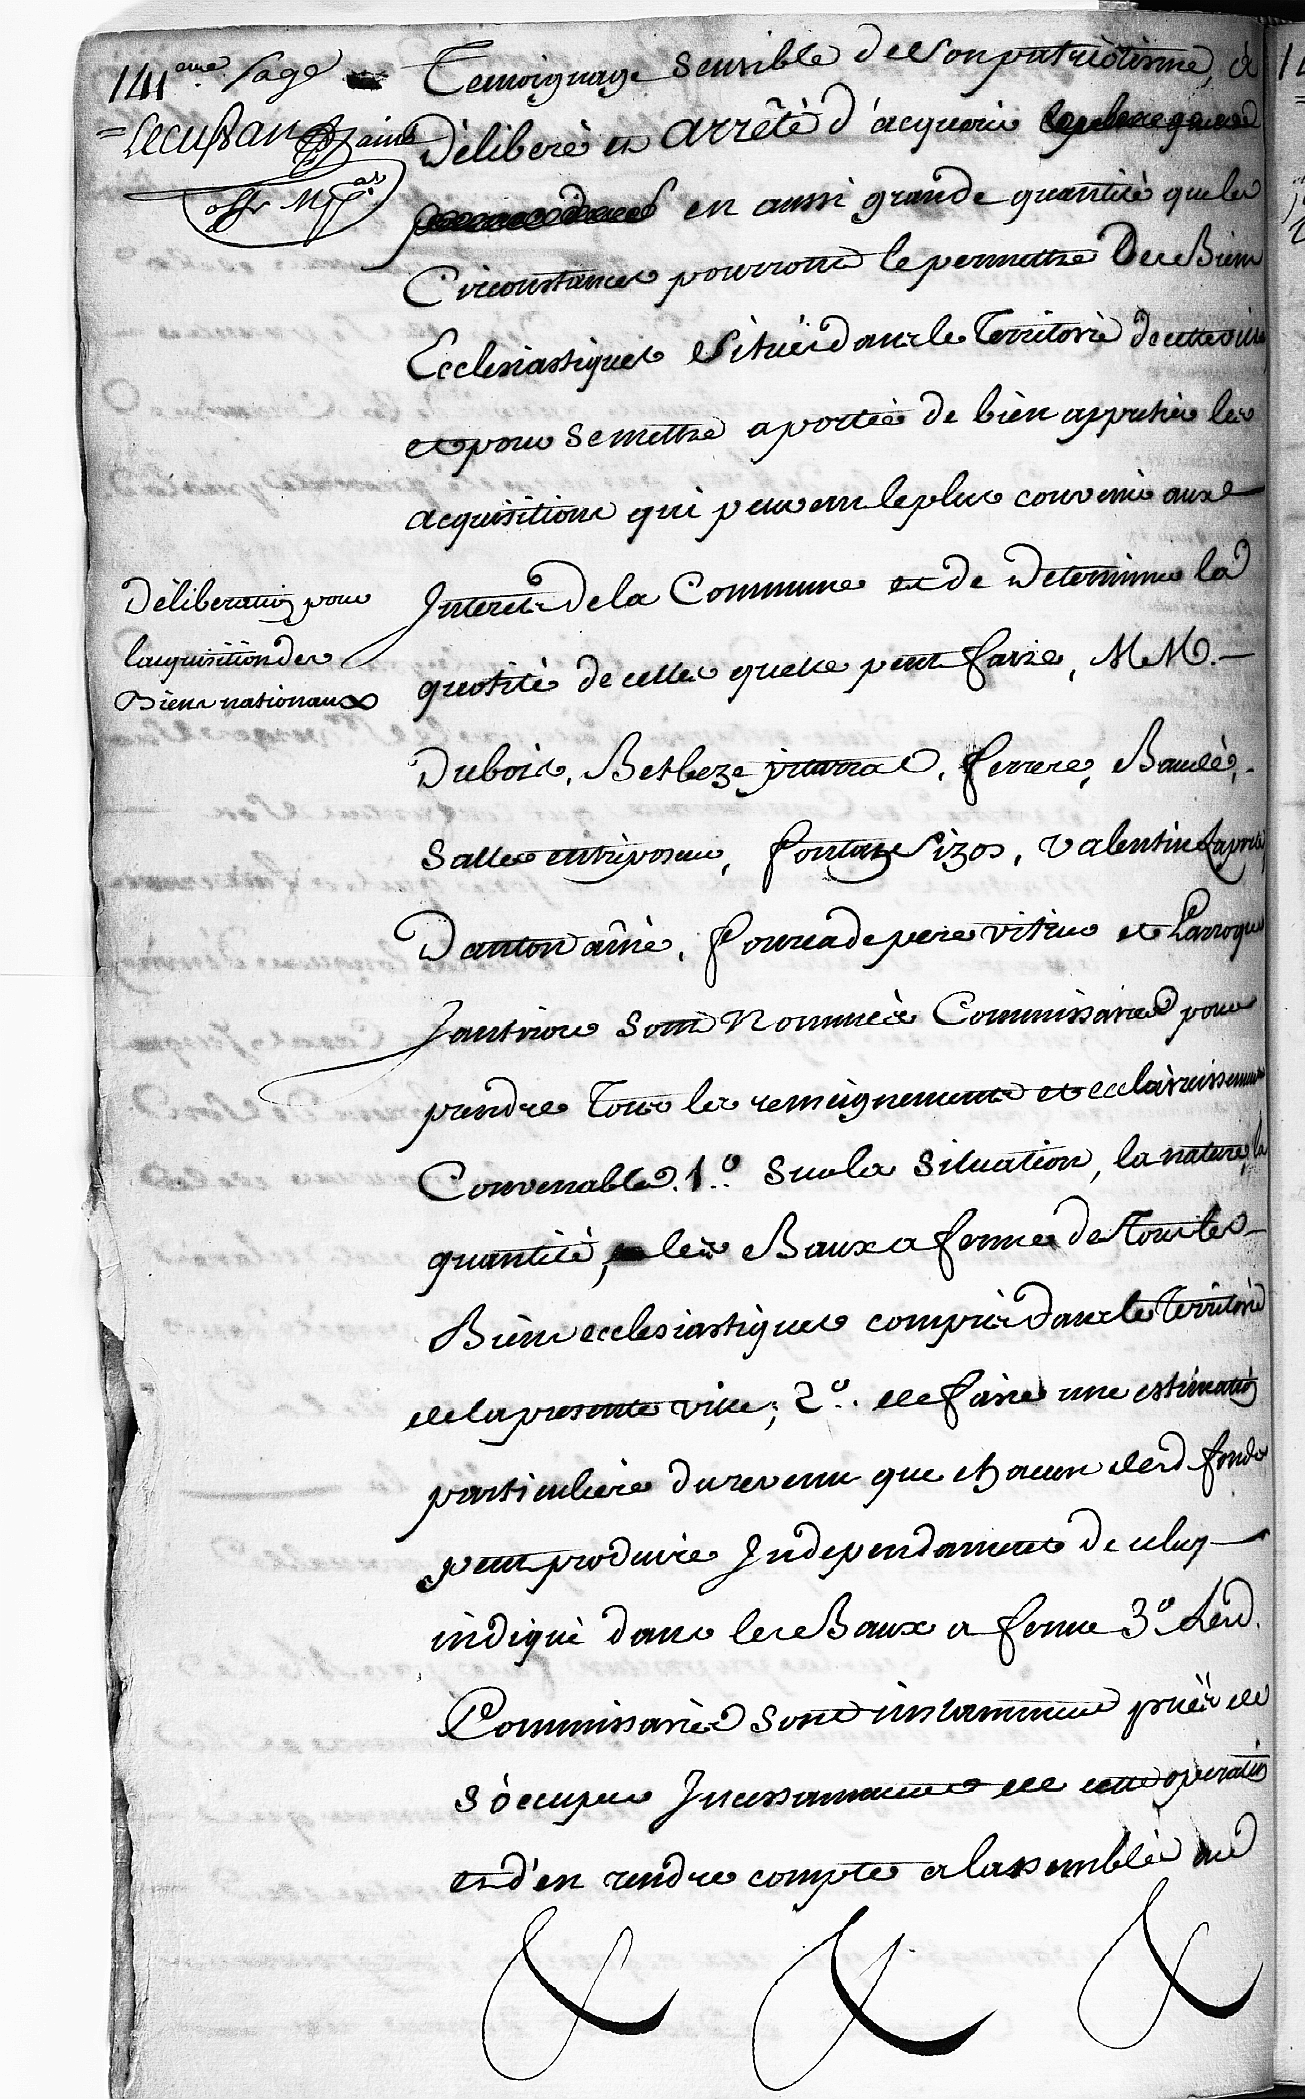 141eme page
Lecussan ainé
offr Mpal
Déliberation pour
lacquisition des
Biens nationaux
Temoignage sensible de son patriotisme, à
Déliberé et arrêté d'acquerir
en aussi grande quantité que les
Circonstances pourront le permettre Des Biens
Ecclesiastiques situés dans le Territoire de cette ville
et pour se mettre a portée de bien appretier les
acquisitions qui peuvent le plus convenir aux
Interets de la Commune et de Determiner la
quotité de celles quelle peut faire, MM.
Dubois, Betbeze journal, ferrere, Baulé,
Salles entreposeur, fontan Sizos, Valentin Laporte
Danton ainé, fourcade pere vitrier et Larroque
Jantriore sont Nommés Commissaires pour
prendre Tous les renseignements et ecclaircissements
Convenables. 1.º sur la situation, la nature, la
quantité, les Baux a ferme de Tous les
Biens ecclesiastiques compris dans le Territoire
de la presente ville; 2º. de faire une estimation
particulière du revenu que chacun desd fonds
peut produire Independament de celuy
indiqué dans les Baux a ferme 3º Lesd.
Commissaires sont instamment priés de
s'óccuper Incessamment de cette operation
et d'en rendre compte a lassemblée au